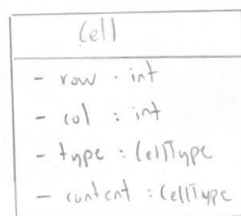 Cell
- row : int
- col : int
- type : CellType
- content : CellType